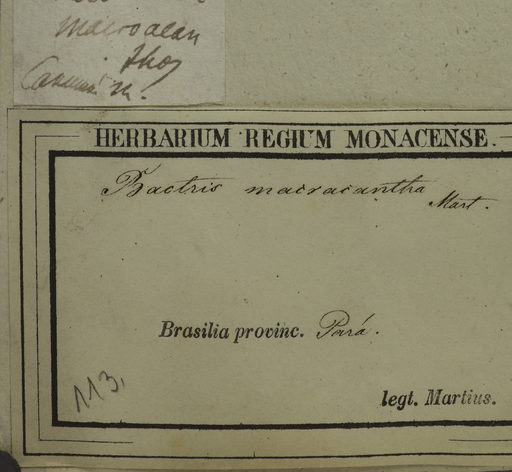 macroacan
thos
HERBARIUM REGIUM MONACENSE.
Bactris macracantha
Mart.
Brasilia provinc. Pará.
113.
legt. Martius.